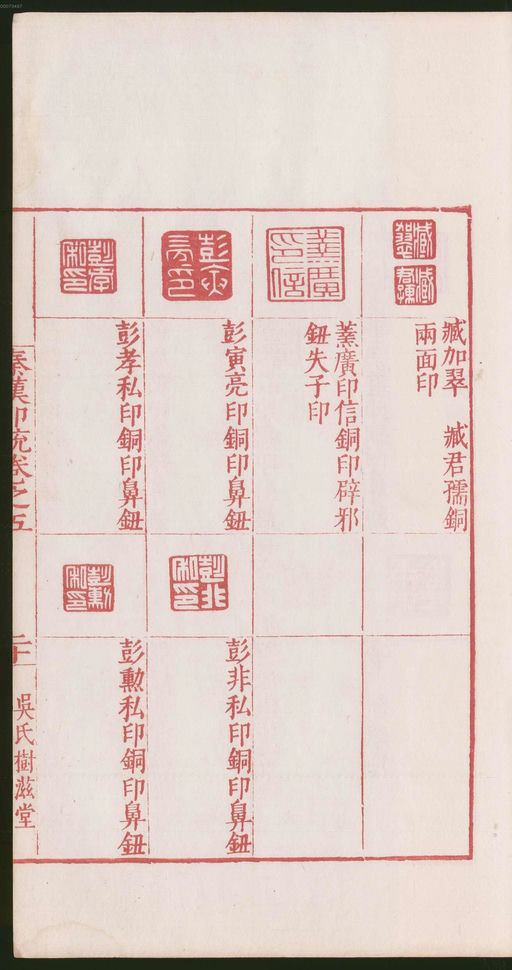 臧加翠　臧君孺銅
兩面印
藁廣印信銅印辟邪
鈕失子印
彭寅亮印銅印鼻鈕
彭非私印銅印鼻鈕
彭孝私印銅印鼻鈕
彭勳私印銅印鼻鈕
秦漢印統卷之五
二十
吳氏樹滋堂
00073497